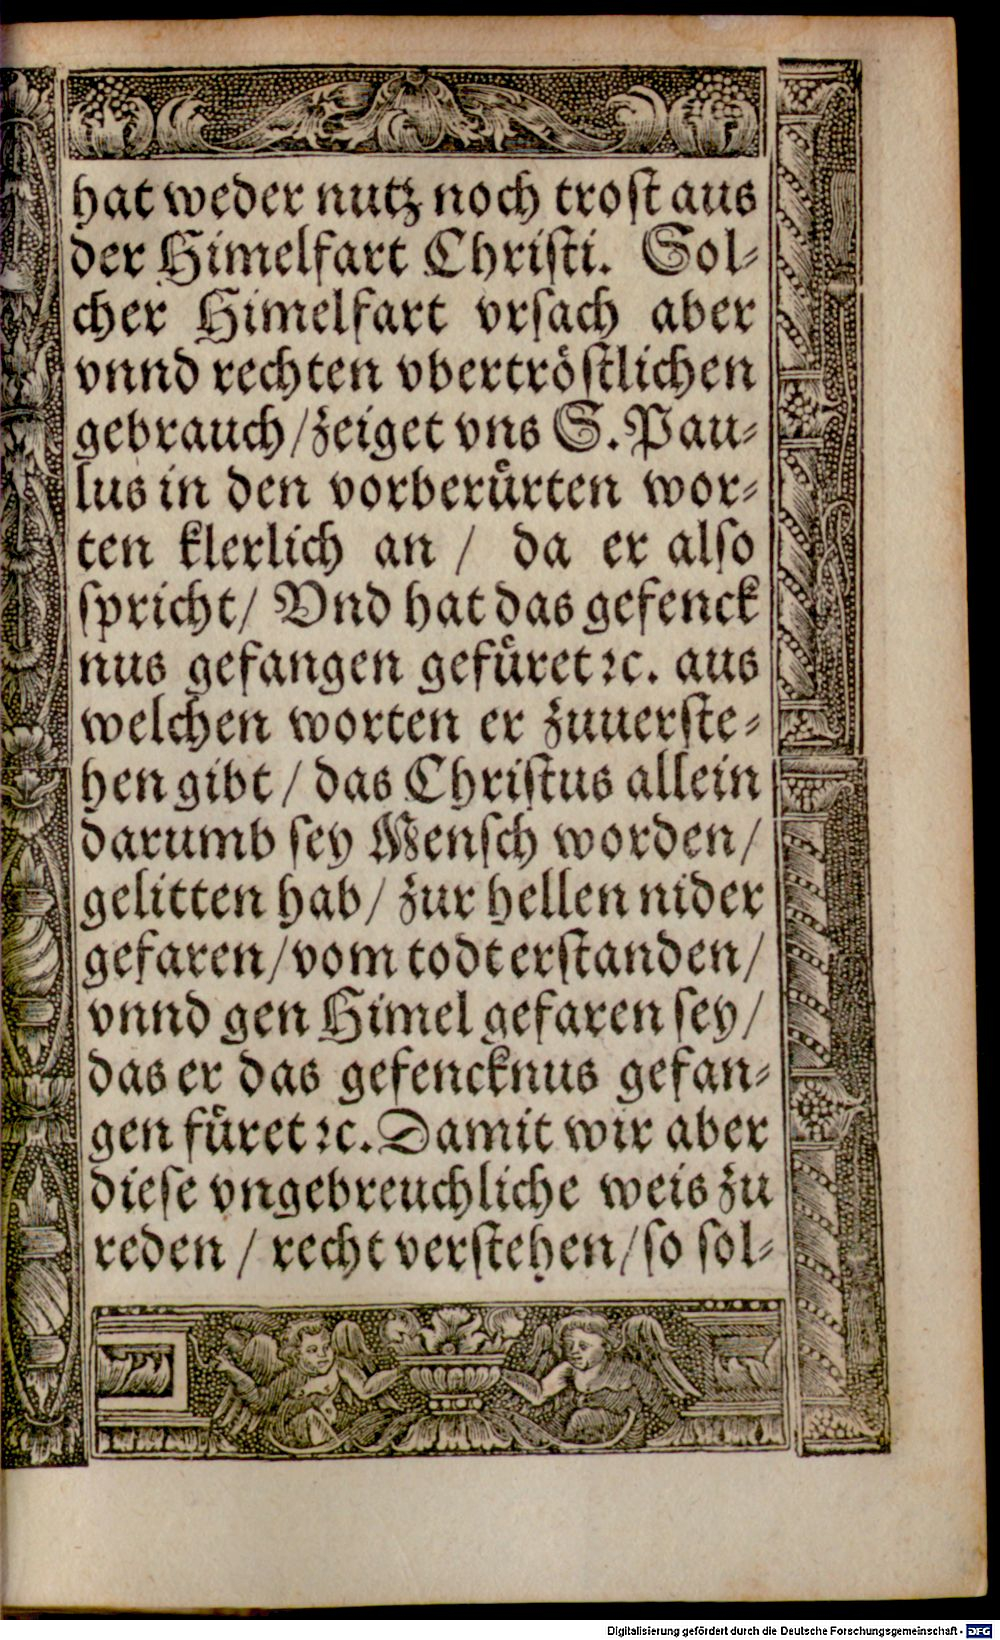 hat weder nutz noch trost aus
der Himelfart Christi. Sol-
cher Himelfart vrsach aber
vnnd rechten vbertröstlichen
gebrauch/zeiget vns S. Pau-
lus in den vorberürten wor-
ten klerlich an / da er also
spricht/ Vnd hat das gefenck
nus gefangen gefüret ꝛc. aus
welchen worten er zuuerste-
hen gibt / das Christus allein
darumb sey Mensch worden/
gelitten hab/ zur hellen nider
gefaren/vom todt erstanden/
vnnd gen Himel gefaren sey/
das er das gefencknus gefan-
gen füret ꝛc. Damit wir aber
diese vngebreuchliche weis zu
reden / recht verstehen/so sol-
Digitalisierung gefördert durch die Deutsche Forschungsgemeinschaft - DFG